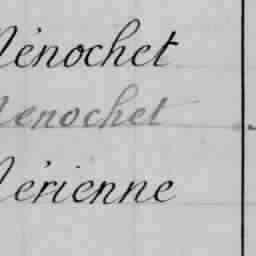 Ménochet
Menochet
Mérienne